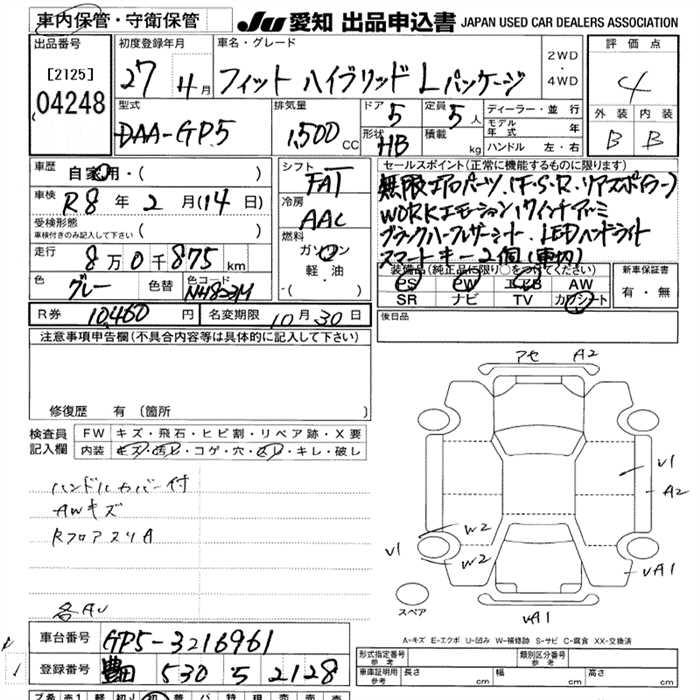 車内保管・守衛保管
JU 愛知 出品申込書 JAPAN USED CAR DEALERS ASSOCIATION
出品番号 初度登録年月 車名・グレード 2WD・4WD 評価点
[2125] 04248 27 11月 フィット ハイブリッド Lパッケージ 4
型式 排気量 ドア 5 定員 5人 ディーラー・並行 外装 内装
DAA-GP5 1,500CC 形状 HB 積載 kg モデル年式 年式 ハンドル 左・右 B B
車歴 自家用・( ) シフト FAT セールスポイント(正常に機能するものに限ります)
車検 R8年2月(14日) 冷房 AAC 無限エアロパーツ(F.S.R.リアスポイラー)
受検形態 車検付きのみ記入して下さい ( ) 燃料 ガソリン WORKエモーション17インチアルミ
走行 8万0千875km 軽油 ブラックハーフレザーシート.LEDヘッドライト
色 グレー 色替 色コード NH823M ・( ) スマートキー2個(車内)
装備品(純正品に限り○をつけてください) 新車保証書
PS PW エアB AW 有・無
SR ナビ TV カワシート
R券 10,460円 名変期限 10月30日 後日品
注意事項申告欄(不具合内容等は具体的に記入して下さい)
アセ A2
修復歴 有(箇所 )
検査員記入欄 FW キズ・飛石・ヒビ割・リペア跡・X要
内装 キズ・汚レ・コゲ・穴・スレ・キレ・破レ
V1
A2
ハンドルカバー付
AWキズ
RフロアスリA
W2
V1 W2
VA1
スペア
VA1
各AU
A-キズ E-エクボ U-凹み W-補修跡 S-サビ C-腐食 XX-交換済
車台番号 GP5-3216961
形式指定番号 参考 類別区分番号 参考
登録番号 豊田 530 5 2128
車庫証明用 参考 長さ cm 幅 cm 高さ cm